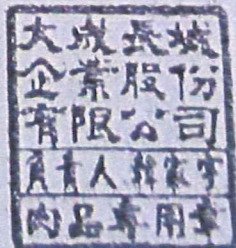 大成長城
企業股份
有限公司
負責人韓家宇
肉品專用章